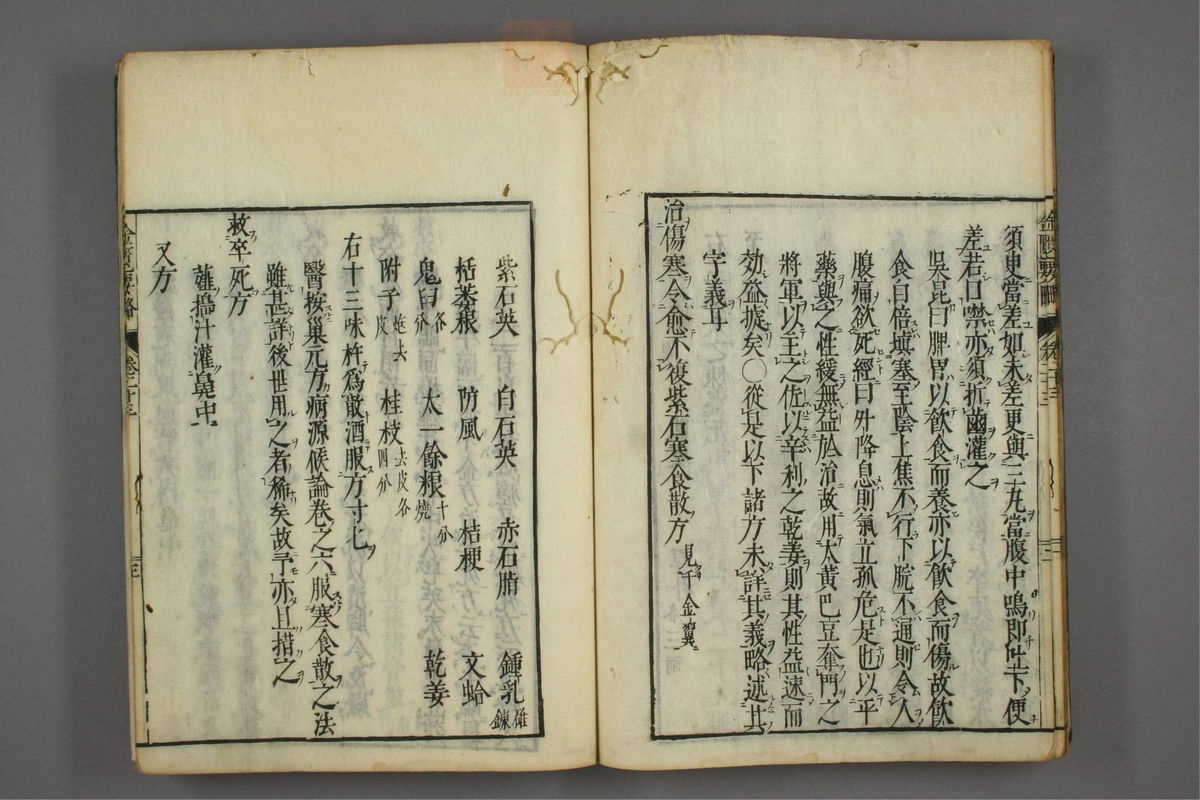 須臾當差如未差更與三丸當腹中鳴即吐下便
差若口噤亦須折齒灌之
吳昆曰脾胃以飲食而養亦以飲食而傷故飲
食自倍塡塞至陰上焦不行下脘不通則令人
腹痛欲死經曰升降息則氣立孤危是也以平
藥與之性緩無益於治故用大黃巴豆奪門之
將軍以主之佐以辛利之乾姜則其性益速而
効益捷矣○從是以下諸方未詳其義略述其
字義耳
治傷寒令愈不復紫石寒食散方 見千金翼
紫石英 白石英 赤石脂 鍾乳 碓鍊
栝蔞根 防風 桔梗 文蛤
鬼臼 各 分 太一餘粮 十分燒 乾姜
附子 炮去皮 桂枝 去皮各四分
右十三味杵為散酒服方寸匕
醫按巢元方病源候論卷之六服寒食散之法
雖甚詳後世用之者稀矣故予亦且措之
救卒死方
薤搗汁灌鼻中
又方